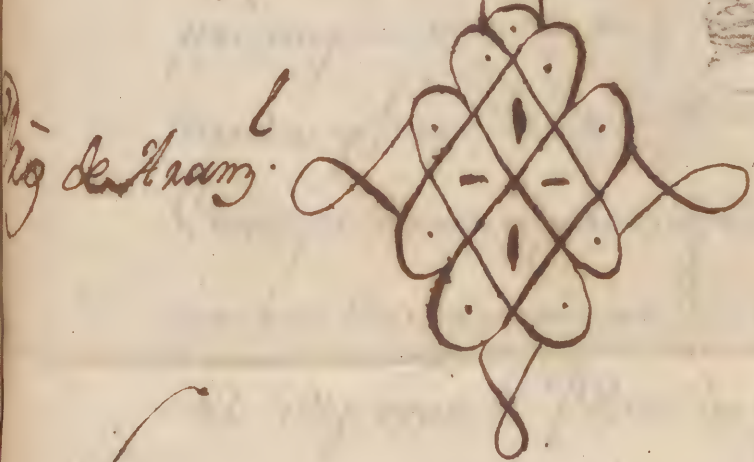 de Aram.l